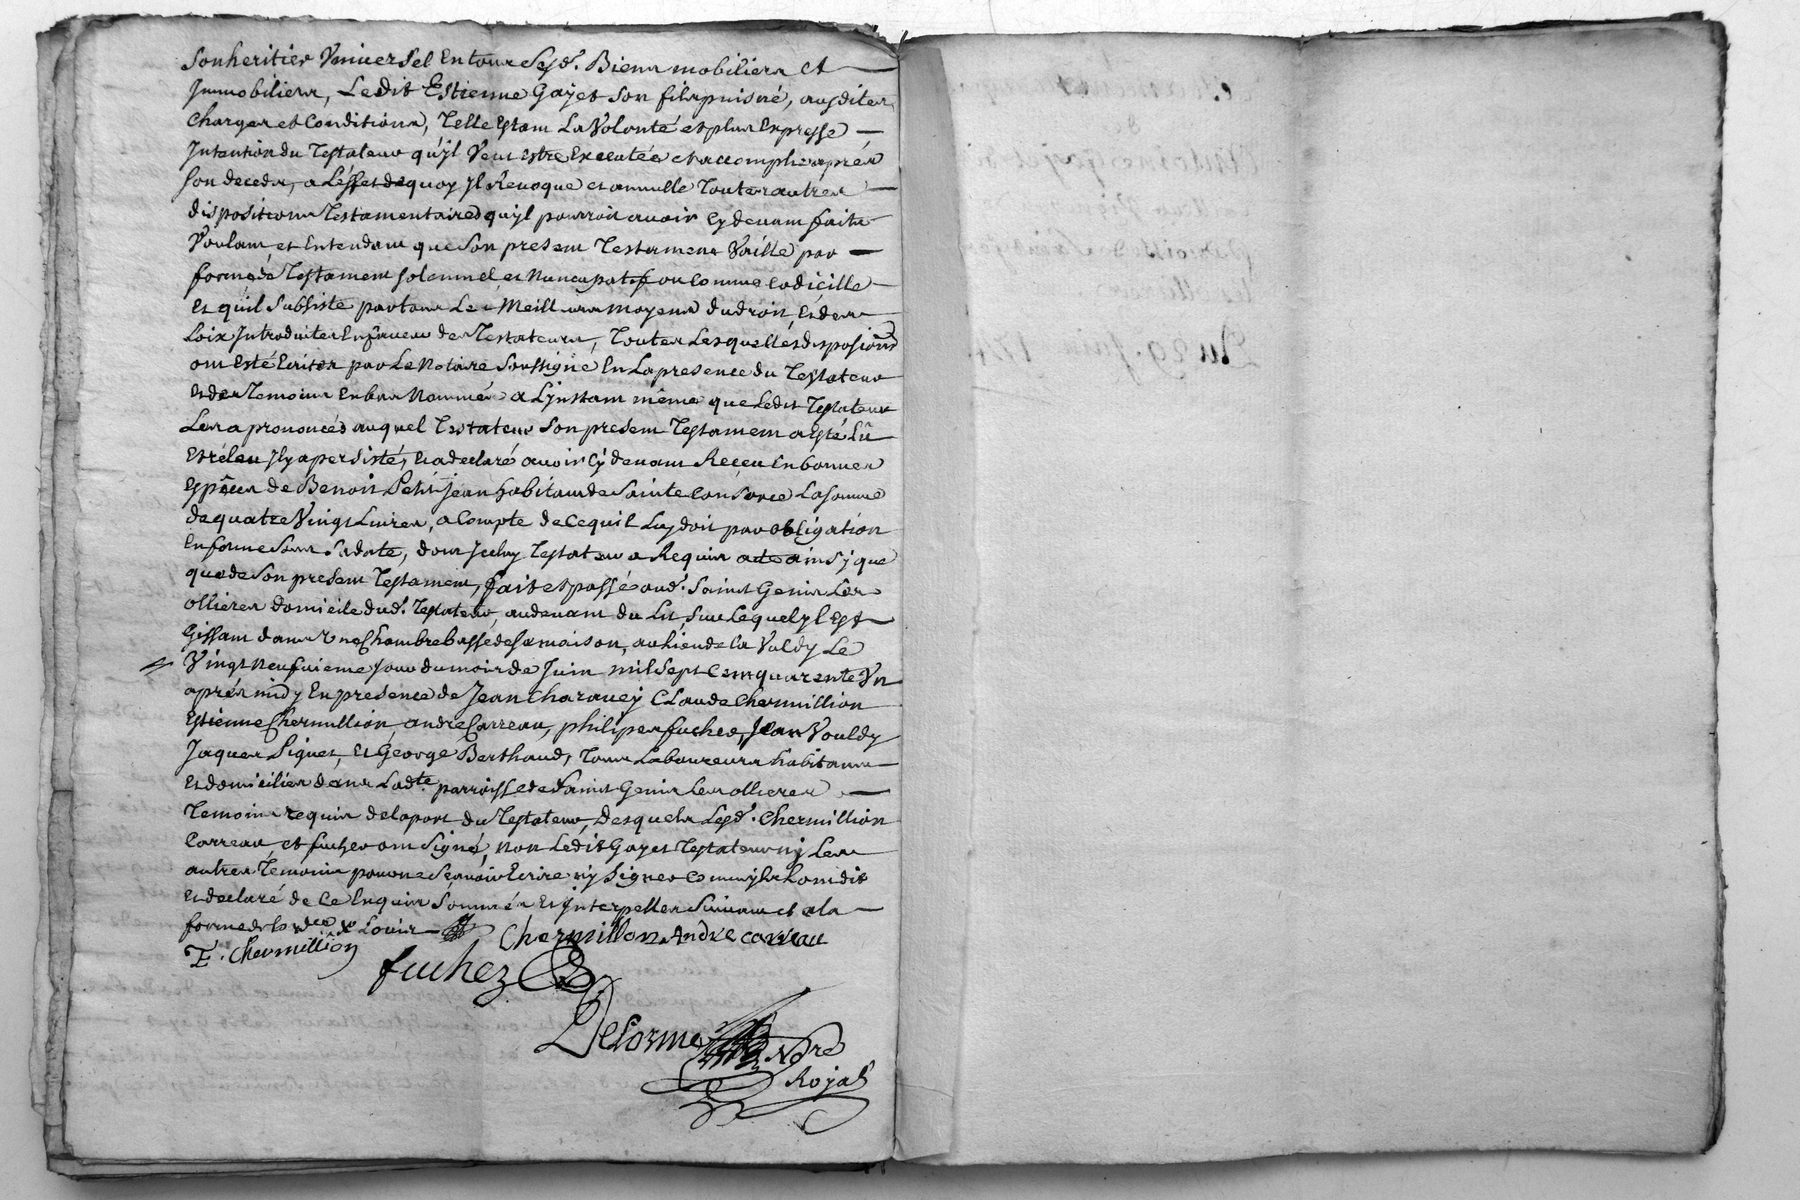 Son heritier Vniversel En tous Sesd. Biens mobiliers et
Jmmobiliers, Ledit Estienne Gayet son fils puisné, ausdites
Charges et Conditions, Telle Estant La Volonté et plus Expresse
Jntention du Testateur qu'jl Veut Estre Executée et accomplie aprés
son deceds, a L'effet de quoy Jl Revoque et annulle Toutes autres
dispositions Testamentaires qu'jl pourroit avoir Cy devant faite
Voulant et Entendant que Son present Testament Vaille par
forme de Testament solemnel, et Nuncupatif ou Comme Codicille
et qu'il Subsiste par tous Les Meilleurs moyens du droit, Et des
Loix Jntroduites En faveur des Testateurs, Toutes Lesquelles disposions
ont Esté Ecrites par Le Notaire Soussigné En La presence du Testateur
et des Temoins En bas Nommés a L'jnstant même que Ledit Testateur
Les a prononcés auquel Testateur Son present Testament a Esté Lû
et réleu Jl y a persisté, Et a declaré avoir Cy devant Receu En bonnes
Espêces de Benoit Petit jean habitant de Sainte Consorce La somme
de quatre Vingt Livres, a Compte de Ce quil Luy doit par obligation
En forme Sous Sa date, dont Jceluy Testateur a Requis acte ainsy que
que de Son present Testament, fait et passé aud. Saint Genis Les
ollieres domicile dud. Testateur, au devant du Lit, sur Lequel jl Est
Gissant dans Vne Chambre basse de sa maison, au Lieu de La Vuldy Le
Vingt neufuieme Jour du mois de Juin mil Sept Cent quarente Vn
aprés midy En presence de Jean Charavey Claude Chermillion
Estienne Chermillion, andre Carreau, philipe fuchez, Jean Vouldy
Jaques Piguet, Et George Berthaud, Tous Laboureurs habitans
Et domiciliés dans Ladte. parroisse de Saint Genis Les ollieres
Temoins requis de la part du Testateur, desquels Lesd. Chermillion
Carreau, et fuchez ont Signé, non Ledit Gayet Testateur ny Les
autres Temoins pour ne Scavoir Ecrire ny Signer Comme jls L'ont dit
Et declaré de Ce Enquis Sommés Et Jnterpellés Suivant et a la
forme de l'ordce. x Louis
Chermillon Andre carreau
E. Chermillion
fuchez
Delorme
Nore
Royal
Du 29. Juin 174